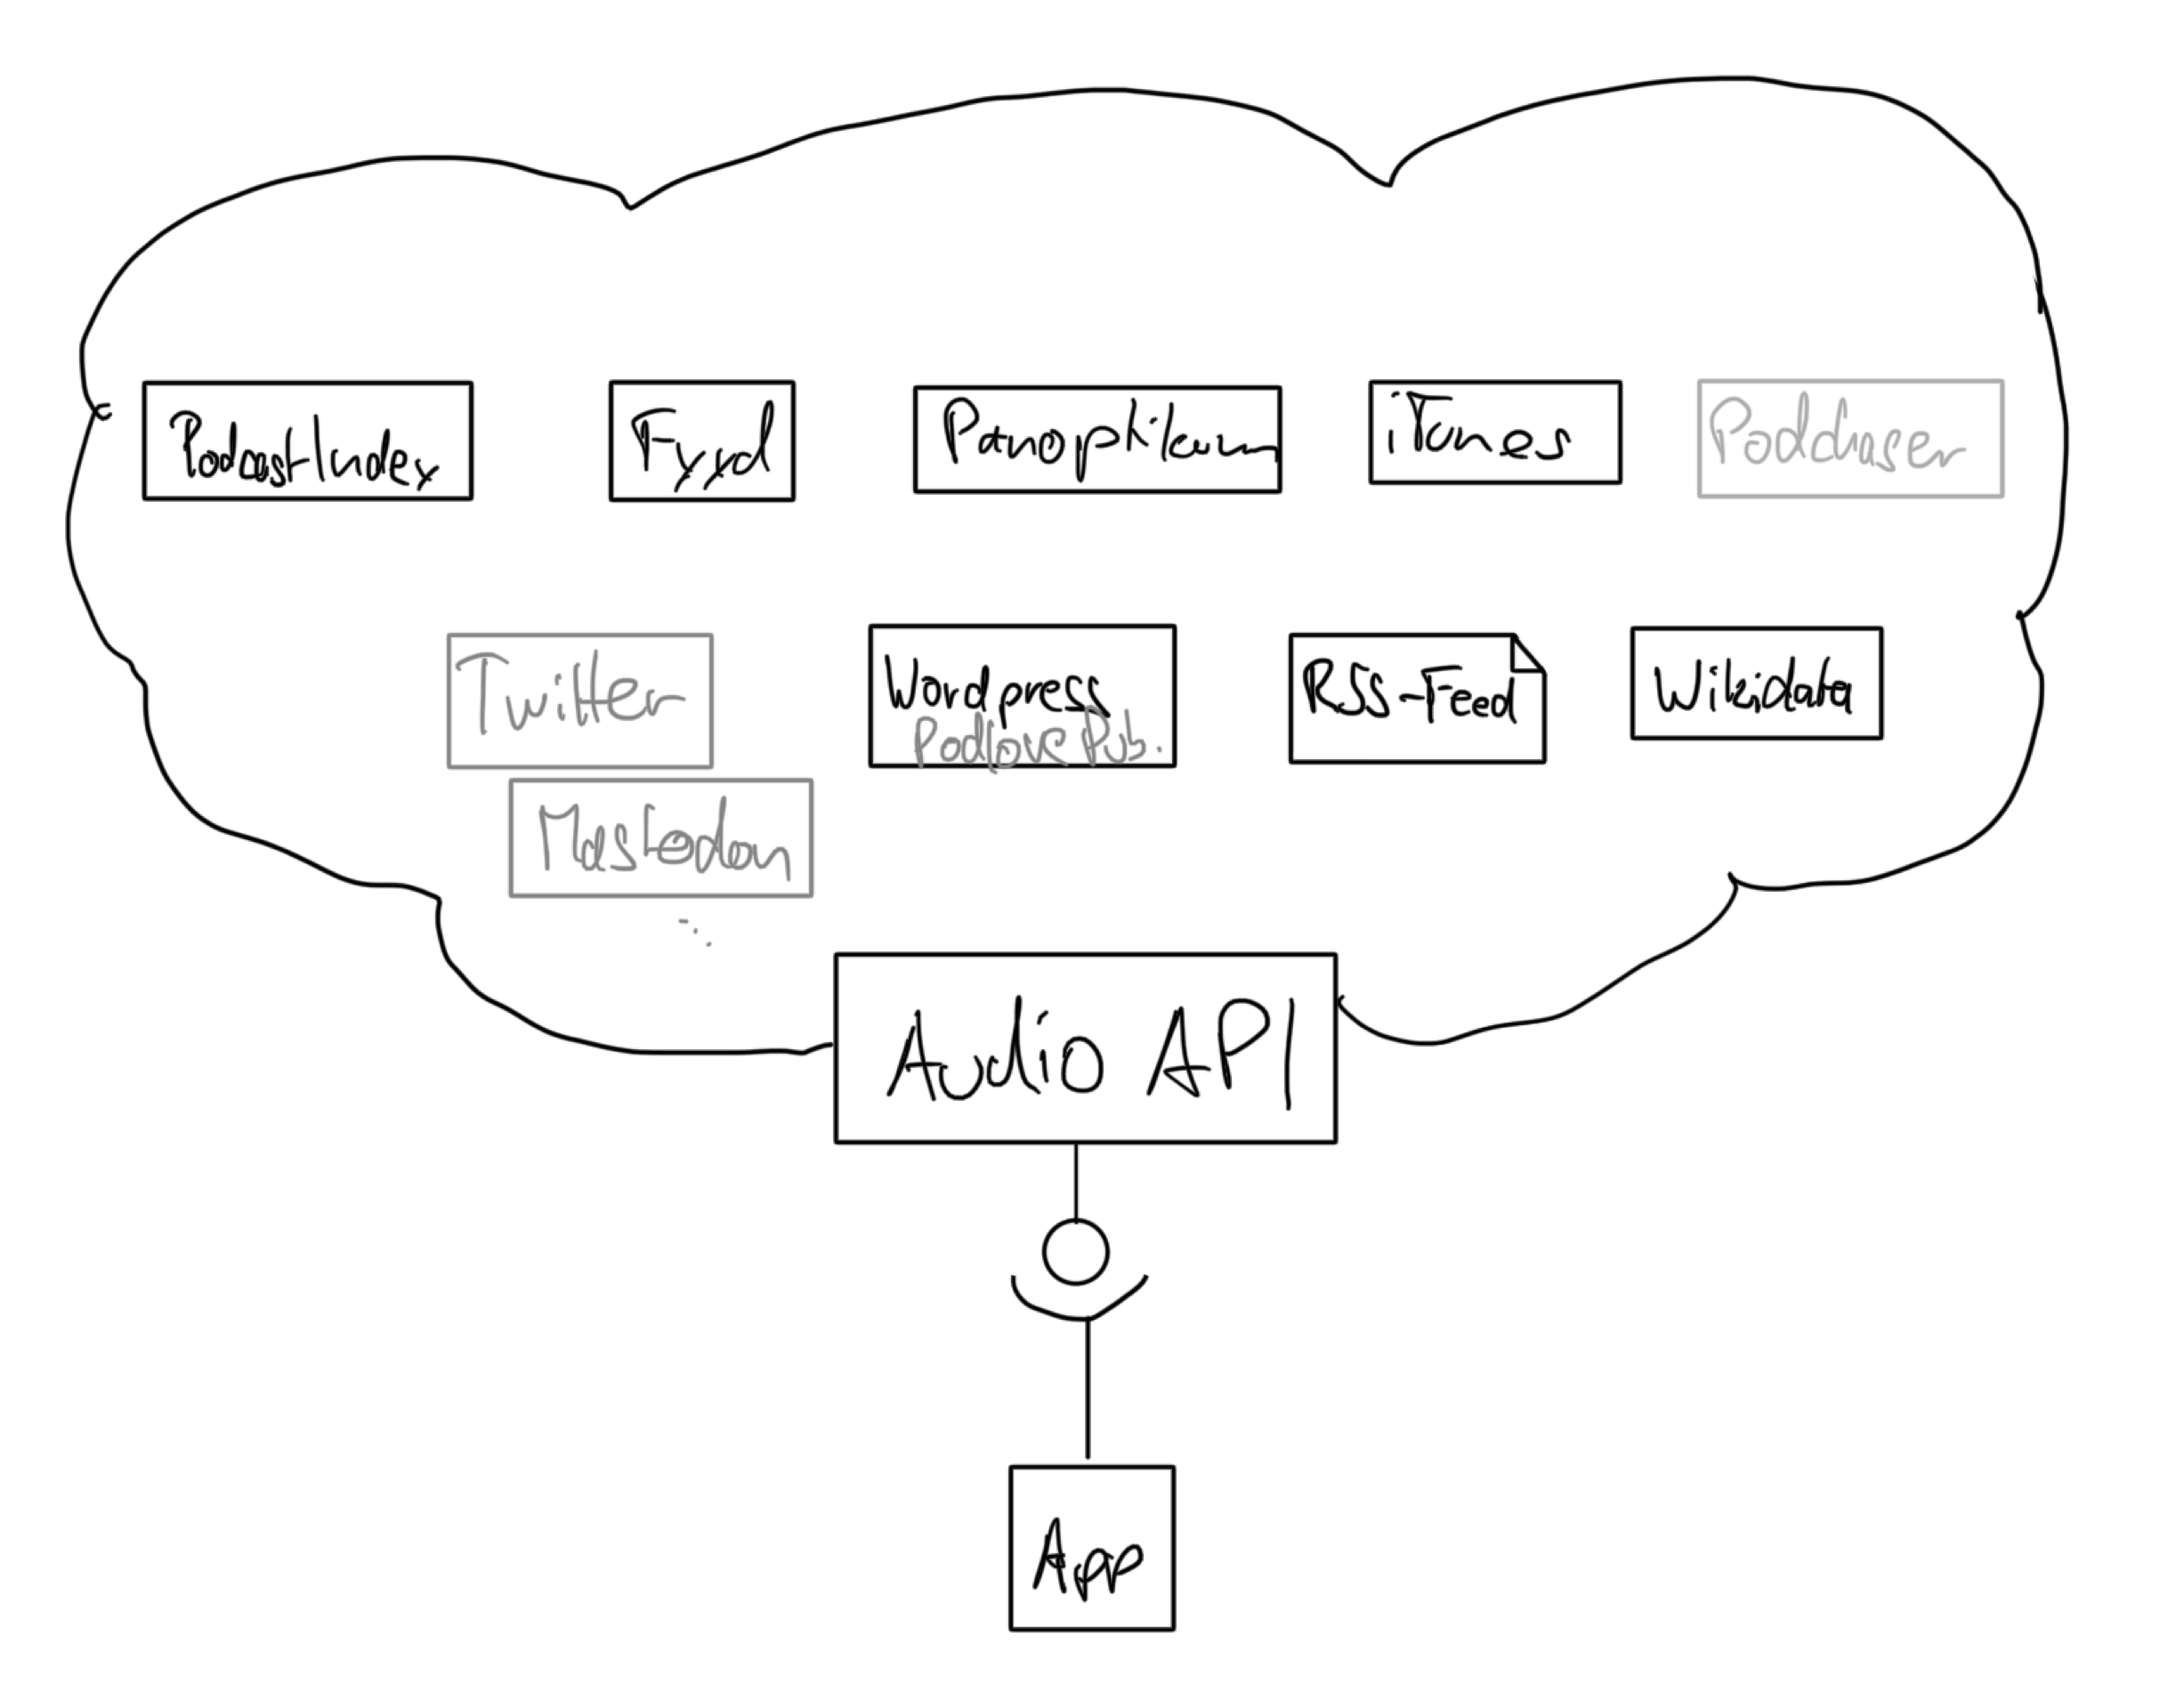 PodcastIndex
Fyyd
Panoptikum
iTunes
Podchaser
Twitter
Wordpress
Podlove Pub.
RSS-Feed
Wikidata
Mastodon
...
Audio API
App